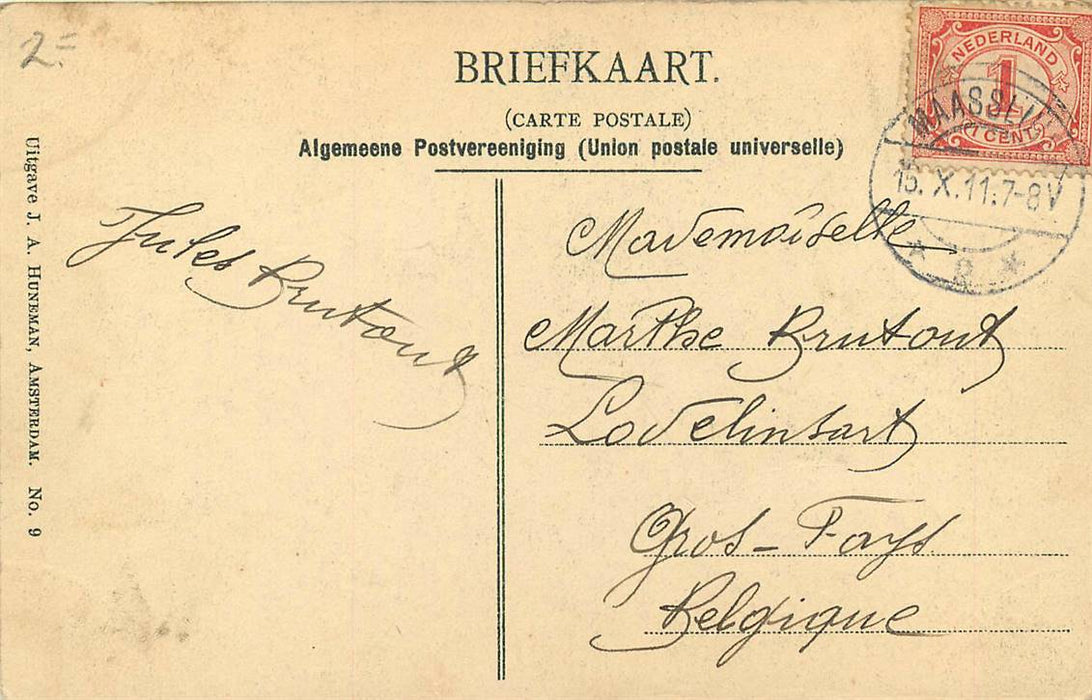 2.=
BRIEFKAART.
(CARTE POSTALE)
Algemeene Postvereeniging (Union postale universelle)
NEDERLAND
1
1 CENT
MAASSL
15.X.11.7-8V
Uitgave J. A. HUNEMAN, AMSTERDAM. No. 9
Jules Brutout
Mademoiselle
Marthe Brutout
Lodelinsart
Gros-Fays
Belgique